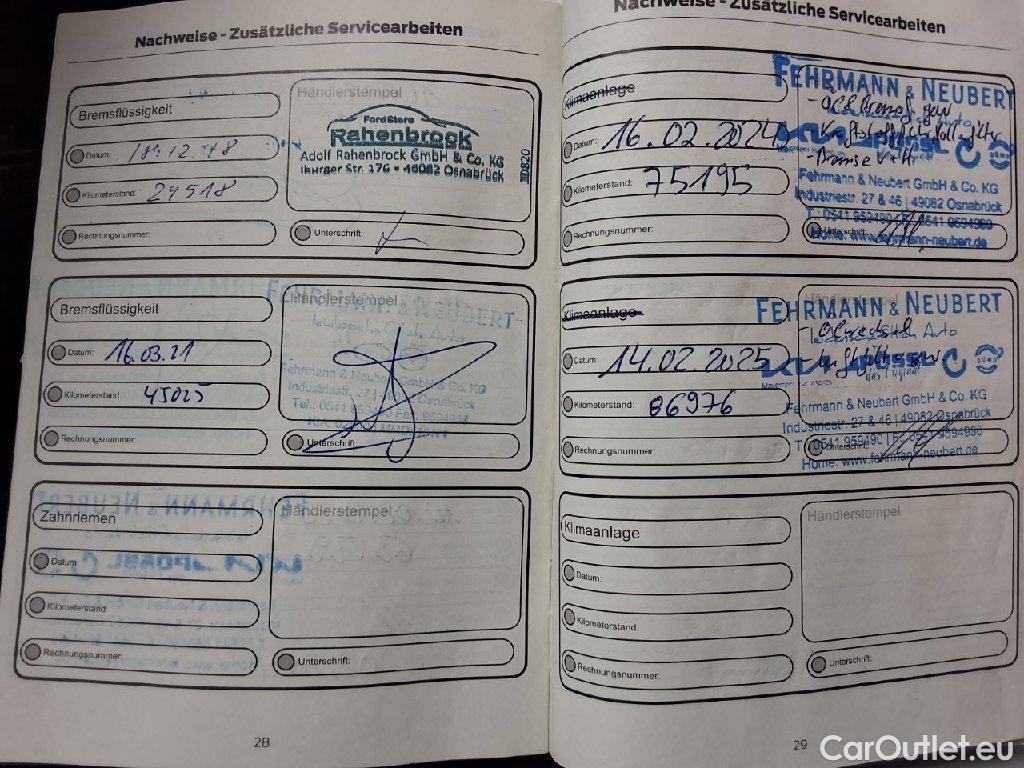 Nachweise - Zusätzliche Servicearbeiten
Bremsflüssigkeit
Datum: 18.12.18
Kilometerstand: 24518
Rechnungsnummer:
Händlerstempel
FordStore
Rahenbrock
Adolf Rahenbrock GmbH & Co. KG
Iburger Str. 176 - 49082 Osnabrück
Unterschrift:
Bremsflüssigkeit
Datum: 16.03.21
Kilometerstand: 45025
Rechnungsnummer:
Händlerstempel
FEHRMANN & NEUBERT
Fehrmann & Neubert GmbH & Co. KG
Industriestr. 27 | 49082 Osnabrück
Unterschrift:
Zahnriemen
Datum:
Kilometerstand:
Rechnungsnummer:
Händlerstempel
Unterschrift:
28
Nachweise - Zusätzliche Servicearbeiten
Klimaanlage
Datum: 16.02.2024
Kilometerstand: 75195
Rechnungsnummer:
FEHRMANN & NEUBERT
PÖSSL
Fehrmann & Neubert GmbH & Co. KG
Industriestr. 27 & 46 | 49082 Osnabrück
T.: 0541 959490 | F.: 0541 9594980
Home: www.fehrmann-neubert.de
Unterschrift:
Klimaanlage
Datum: 14.02.2025
Kilometerstand: 86976
Rechnungsnummer:
Händlerstempel
FEHRMANN & NEUBERT
Auto
PÖSSL
Das Original
Fehrmann & Neubert GmbH & Co. KG
Industriestr. 27 & 46 | 49082 Osnabrück
T.: 0541 959490 | F.: 0541 9594980
Home: www.fehrmann-neubert.de
Unterschrift:
Klimaanlage
Datum:
Kilometerstand:
Rechnungsnummer:
Händlerstempel
Unterschrift:
29
CarOutlet.eu